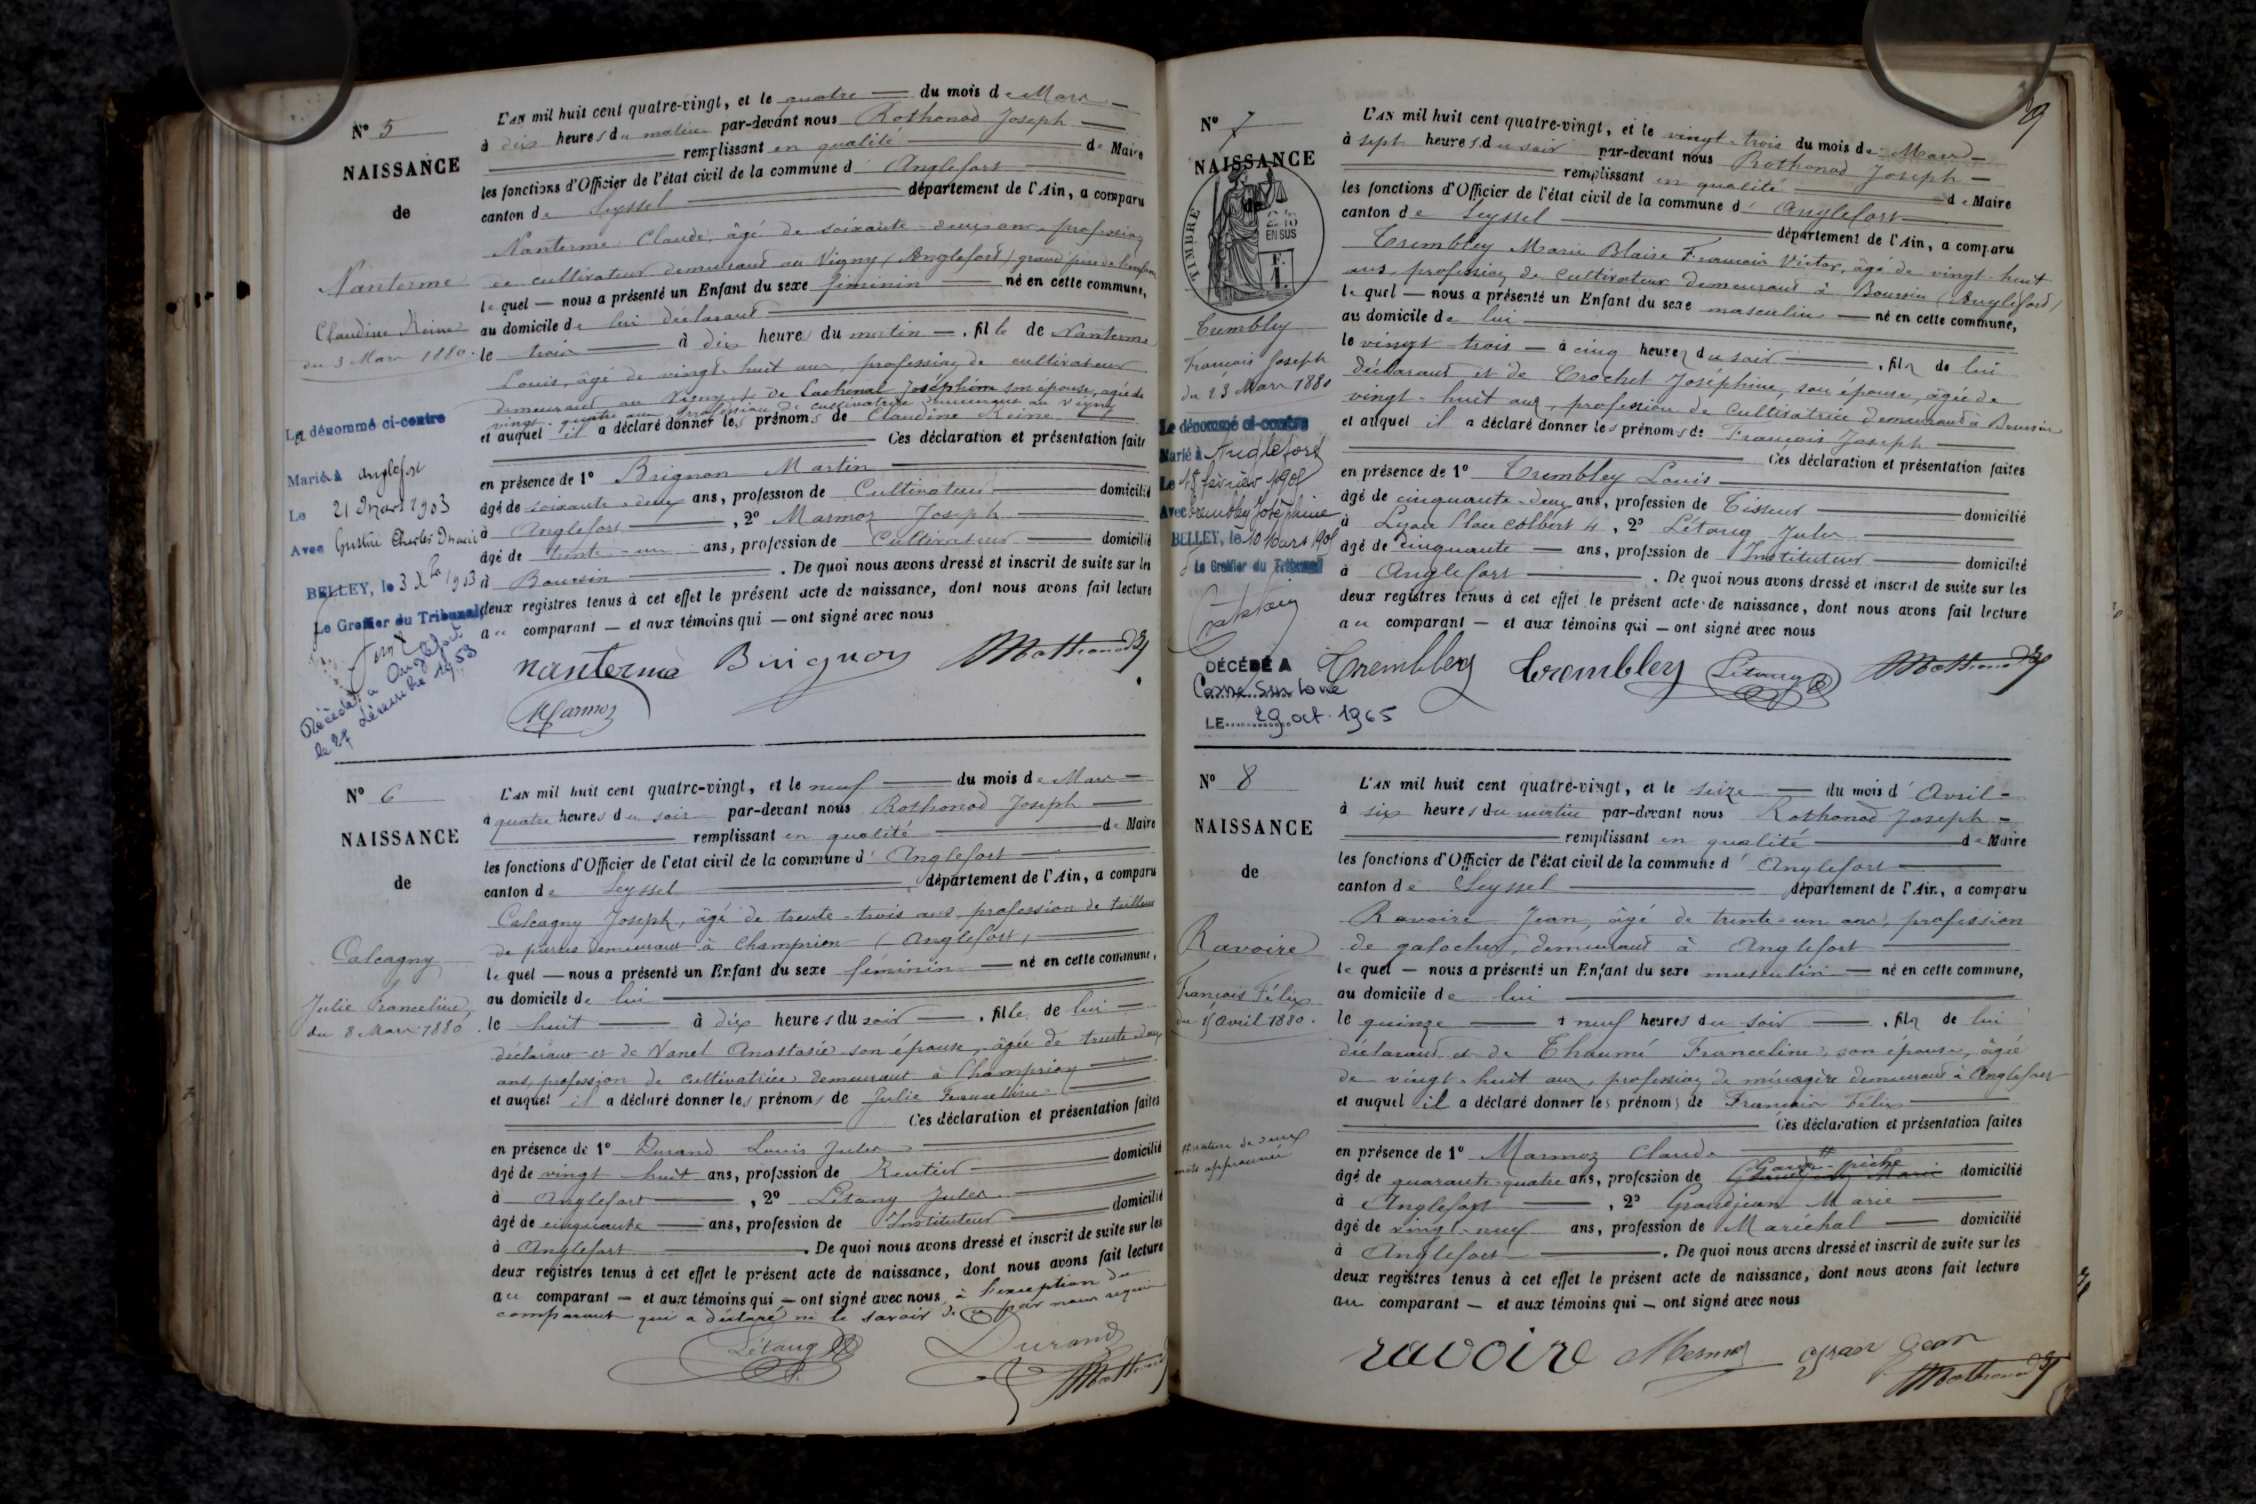 N° 5
NAISSANCE
de
Nanterme
Claudine Reine
du 3 Mars 1880.
La dénommé ci-contre
Marié à Anglefort
Le 21 Mars 1903
Avec Gustin Charles Marie
BELLEY, le 3 Xbre 1903
Le Greffier du Tribunal,
Décédée à Anglefort
le 27 décembre 1953
L'AN mil huit cent quatre-vingt, et le quatre du mois de Mars
à dix heures du matin par-devant nous Rothonod Joseph
remplissant en qualité de Maire
les fonctions d'Officier de l'état civil de la commune d'Anglefort
canton de Seyssel département de l'Ain, a comparu
Nanterme Claude, âgé de soixante-deux ans, profession
de cultivateur demeurant au Vigny (Anglefort) grand père de l'enfant
le quel — nous a présenté un Enfant du sexe féminin né en cette commune,
au domicile de lui déclarant
le trois à dix heures du matin, fille de Nanterme
Louis, âgé de vingt-huit ans, profession de cultivateur
demeurant au Vigny et de Lachenal Joséphine son épouse, agée de
vingt-quatre ans profession de cultivatrice demeurant au Vigny
et auquel il a déclaré donner les prénoms de Claudine Reine
Ces déclaration et présentation faites
en présence de 1° Brignon Martin
âgé de soixante-deux ans, profession de Cultivateur domicilié
à Anglefort, 2° Marmoz Joseph
âgé de trente-un ans, profession de Cultivateur domicilié
à Boursin. De quoi nous avons dressé et inscrit de suite sur les
deux registres tenus à cet effet le présent acte de naissance, dont nous avons fait lecture
au comparant — et aux témoins qui — ont signé avec nous
nanterme Brignon Rothonod
Marmoz
N° 6
NAISSANCE
de
Calcagny
Julie Franceline,
du 8 Mars 1880.
L'AN mil huit cent quatre-vingt, et le neuf du mois de Mars
à quatre heures du soir par-devant nous Rothonod Joseph
remplissant en qualité de Maire
les fonctions d'Officier de l'état civil de la commune d'Anglefort
canton de Seyssel département de l'Ain, a comparu
Calcagny Joseph, âgé de trente-trois ans, profession de tailleur
de pierres demeurant à Champrion (Anglefort)
le quel — nous a présenté un Enfant du sexe féminin né en cette commune,
au domicile de lui
le huit à dix heures du soir, fille de lui
déclarant et de Vanel Anastasie son épouse, âgée de trente-deux
ans, profession de cultivatrice demeurant à Champrion
et auquel il a déclaré donner les prénoms de Julie Franceline
Ces déclaration et présentation faites
en présence de 1° Durand Louis Jules
âgé de vingt huit ans, profession de Rentier domicilié
à Anglefort, 2° Létang Jules
âgé de cinquante ans, profession de Instituteur domicilié
à Anglefort. De quoi nous avons dressé et inscrit de suite sur les
deux registres tenus à cet effet le présent acte de naissance, dont nous avons fait lecture
au comparant — et aux témoins qui — ont signé avec nous à l'exception du
comparant qui a déclaré ne le savoir de ce par nous requis
Létang Durand
Rothonod
29
N° 7
NAISSANCE
de
TIMBRE
2/10
EN SUS
F.
1.
Trembley
François Joseph
du 23 Mars 1880
Le dénommé ci-contre
Marié à Anglefort
Le 18 février 1905
Avec Trembley Joséphine
BELLEY, le 10 Mars 1905
Le Greffier du Tribunal
DÉCÉDÉ A
Cosne sur Loire
LE 29 oct. 1965
L'AN mil huit cent quatre-vingt, et le vingt-trois du mois de Mars
à sept heures du soir par-devant nous Rothonod Joseph
remplissant en qualité de Maire
les fonctions d'Officier de l'état civil de la commune d'Anglefort
canton de Seyssel département de l'Ain, a comparu
Trembley Marie Blaise François Victor, âgé de vingt-huit
ans, profession de Cultivateur demeurant à Boursin (Anglefort)
le quel — nous a présenté un Enfant du sexe masculin né en cette commune,
au domicile de lui
le vingt-trois à cinq heures du soir, fils de lui
déclarant et de Crochet Joséphine, son épouse, âgée de
vingt-huit ans, profession de Cultivatrice demeurant à Boursin
et auquel il a déclaré donner les prénoms de François Joseph
Ces déclaration et présentation faites
en présence de 1° Trembley Louis
âgé de cinquante-deux ans, profession de Tisseur domicilié
à Lyon Place Colbert 4, 2° Létang Jules
âgé de cinquante ans, profession de Instituteur domicilié
à Anglefort. De quoi nous avons dressé et inscrit de suite sur les
deux registres tenus à cet effet le présent acte de naissance, dont nous avons fait lecture
au comparant — et aux témoins qui — ont signé avec nous
Trembley trembley Létang Rothonod
N° 8
NAISSANCE
de
Ravoire
François Félix
du 15 Avril 1880.
Rature de deux
mots approuvée
L'AN mil huit cent quatre-vingt, et le seize du mois d'Avril
à six heures du matin par-devant nous Rothonod Joseph
remplissant en qualité de Maire
les fonctions d'Officier de l'état civil de la commune d'Anglefort
canton de Seyssel département de l'Ain, a comparu
Ravoire Jean, âgé de trente-un ans, profession
de galocher, demeurant à Anglefort
le quel — nous a présenté un Enfant du sexe masculin né en cette commune,
au domicile de lui
le quinze à neuf heures du soir, fils de lui
déclarant et de Thaumé Franceline, son épouse, âgée
de vingt-huit ans, profession de ménagère demeurant à Anglefort
et auquel il a déclaré donner les prénoms de François Félix
Ces déclaration et présentation faites
en présence de 1° Marmoz Claude
Garde-pêche
âgé de quarante-quatre ans, profession de Grandjean Marie domicilié
à Anglefort, 2° Grandjean Marie
âgé de vingt-neuf ans, profession de Maréchal domicilié
à Anglefort. De quoi nous avons dressé et inscrit de suite sur les
deux registres tenus à cet effet le présent acte de naissance, dont nous avons fait lecture
au comparant — et aux témoins qui — ont signé avec nous
ravoire Marmoz gran Jean
Rothonod